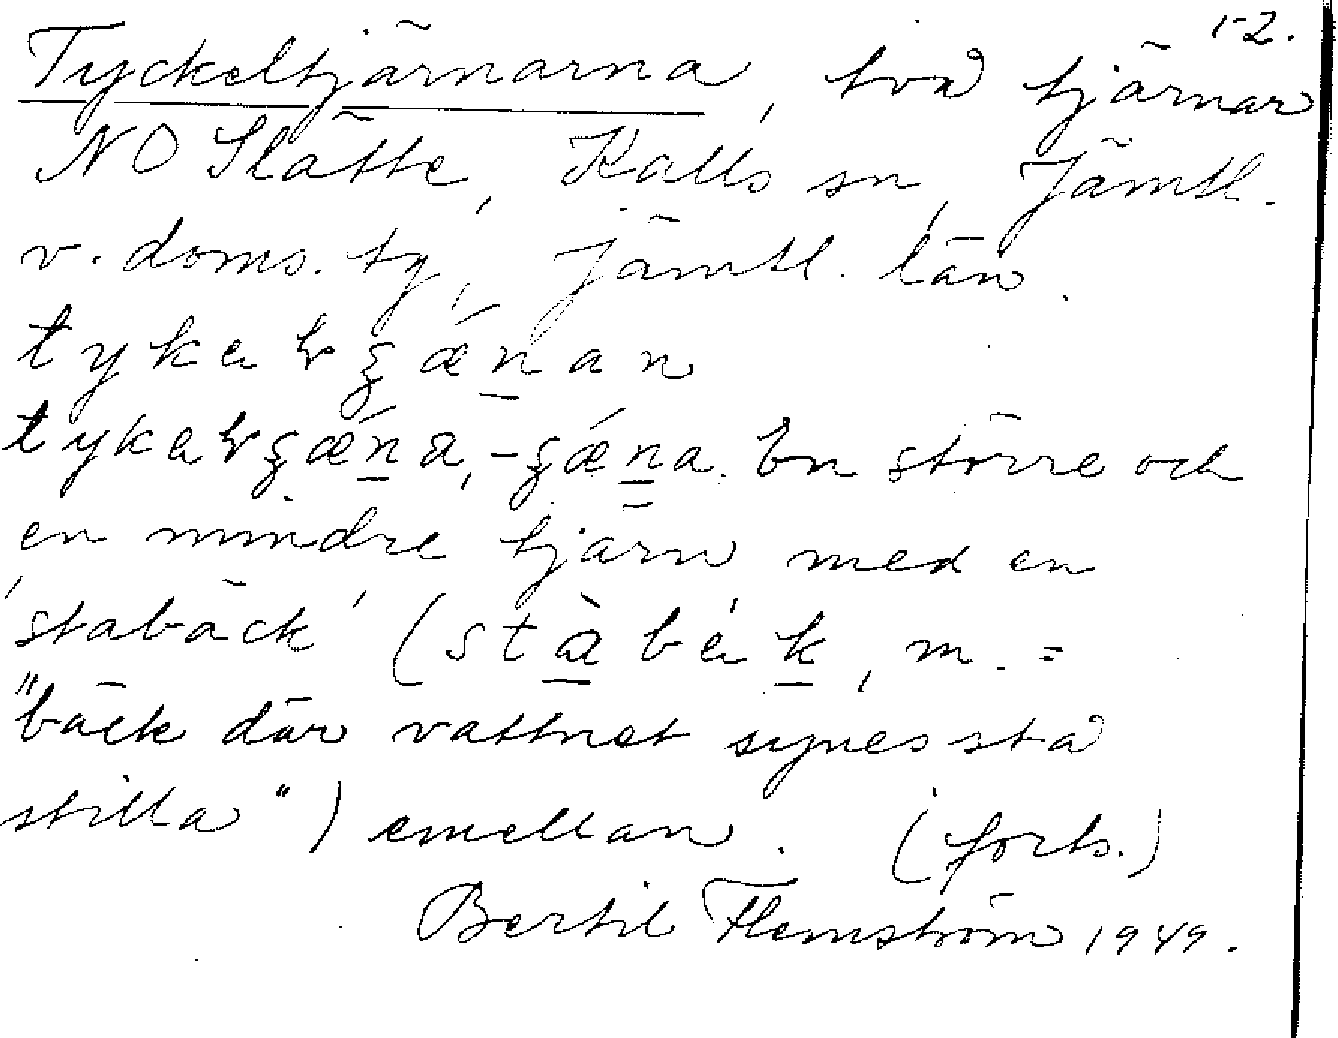 1-2.
Tyckeltjärnarna, två tjärnar
NO Slätte, Kalls sn, Jämtl.
v. doms. ty, Jämtl. län.
en större och
en mindre tjärn med en
'stabäck' (stàbék, m. =
"bäck där vattnet synes stå
stilla") emellan. (forts.)
Bertil Flemström 1949.